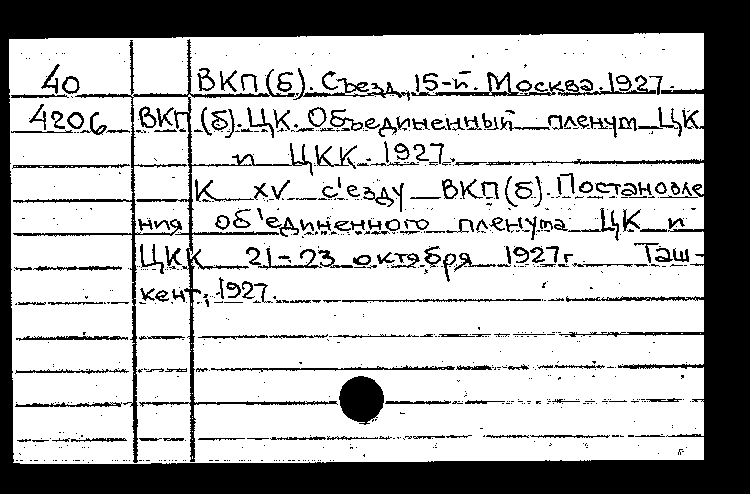 40 ВКП(б). Съезд, 15-й. Москва. 1927.
4206 ВКП(б). ЦК. Объединенный пленум ЦК
и ЦКК. 1927.
К XV с'езду ВКП(б). Постановле
ния об'единенного пленума ЦК и
ЦКК 21-23 октября 1927г. Таш-
кент, 1927.